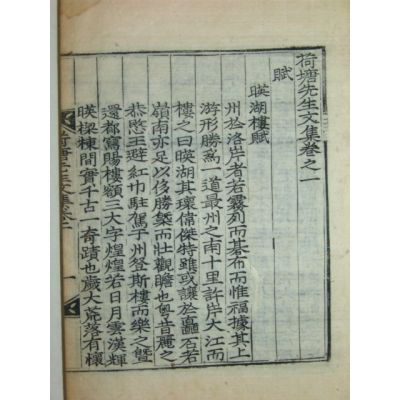 荷塘先生文集卷之一
賦
暎湖樓賦
州於洛岸者若霧列而碁布而惟福據其上
游形勝爲一道最州之南十里許岸大江而
樓之曰暎湖其瓌偉傑特雖或讓於矗石若
嶺南亦足以侈勝槩而壯觀瞻也粤昔麗之
恭愍王避紅巾駐駕于州登斯樓而樂之曁
還都寫賜樓額三大字煌煌若日月雲漢輝
暎樑棟間實千古一奇蹟也歲大荒落有
荷塘先生文集卷一
一